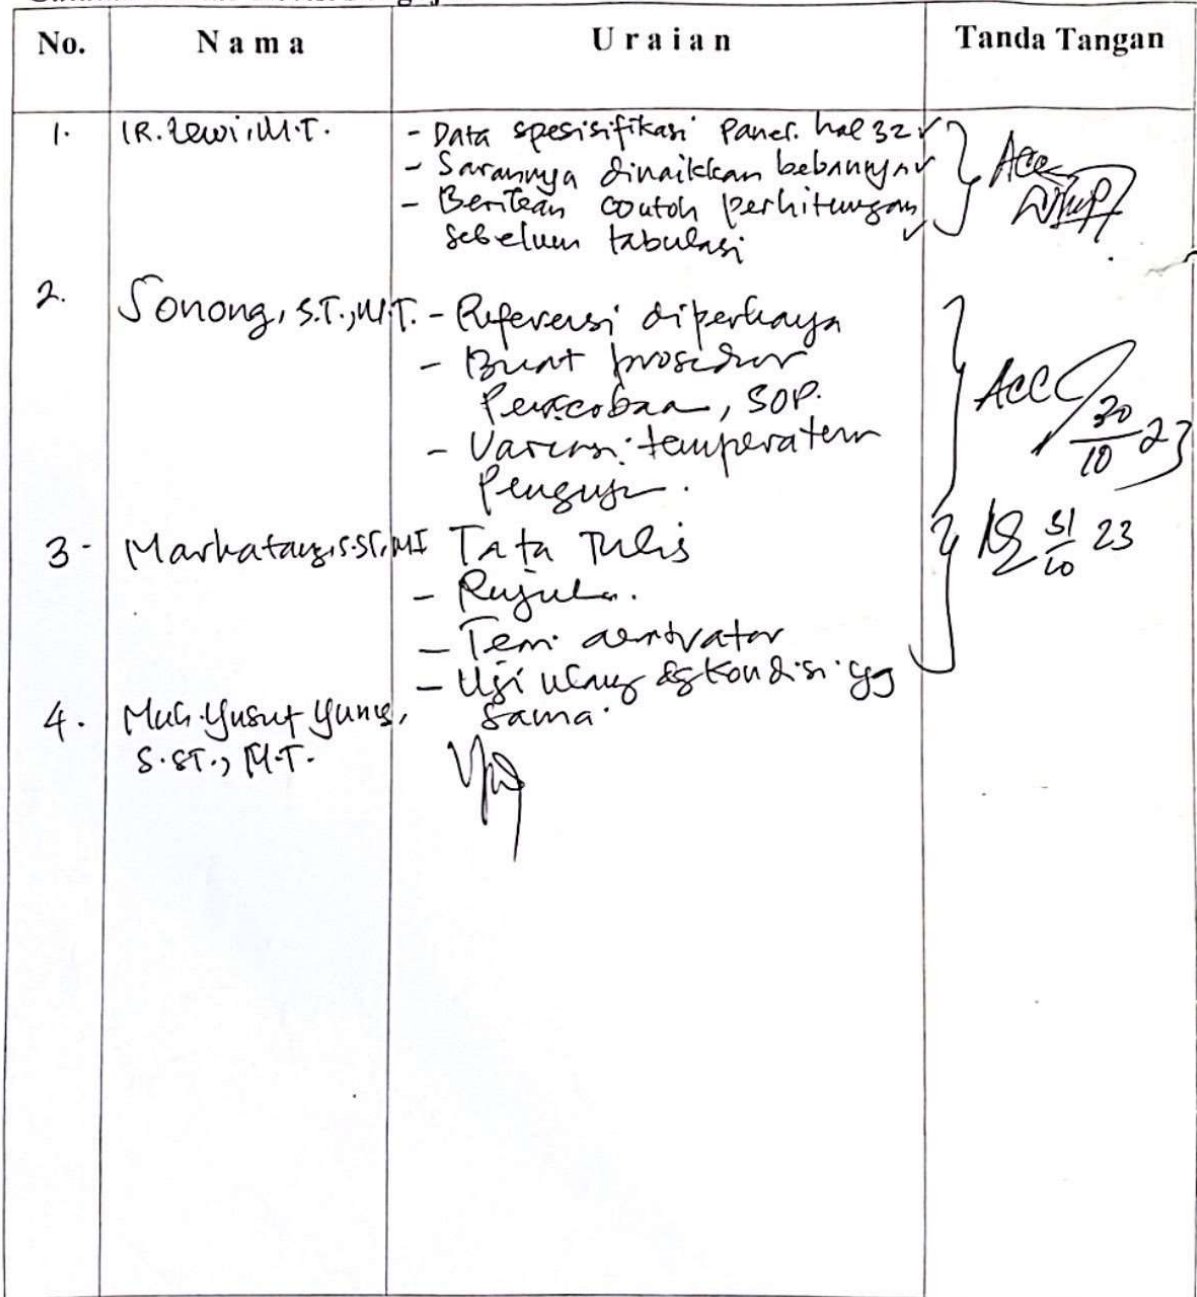 No. Nama Uraian Tanda Tangan
1. IR. Lewi, M.T. - Data spesisifikasi Panel. hal 32 ✓
- Sarannya dinaikkan bebannya ✓
- Berikan contoh perhitungan
sebelum tabulasi ✓
Acc
2. Sonong, S.T., M.T. - Referensi diperkaya
- Buat prosedur
Percobaan, SOP.
- Variasi temperatur
Penguji.
Acc 30/10 23
3- Markatang, S.ST, MT Tata Tulis
- Rujukan.
- Teori
- Uji ulang dg kondisi yg
sama.
31/10 23
4. Muh. Yusuf Yunus,
S.ST., M.T.